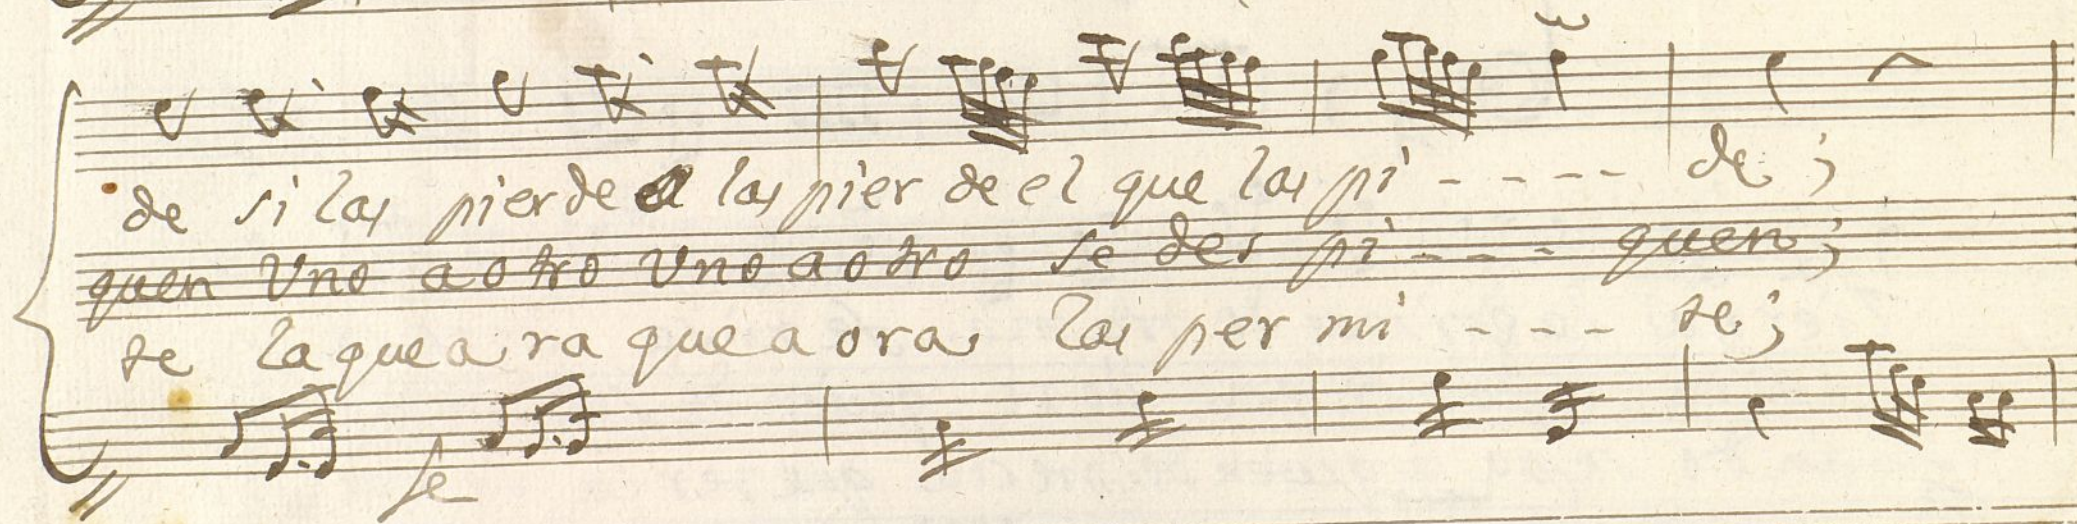 de si las pierde las pier de el que las pi - - - - - de ;
quen Vno a otro Vno a otro se des pi - - - - quen ;
te la que a ra que a ora las per mi - - - - te ;
fe